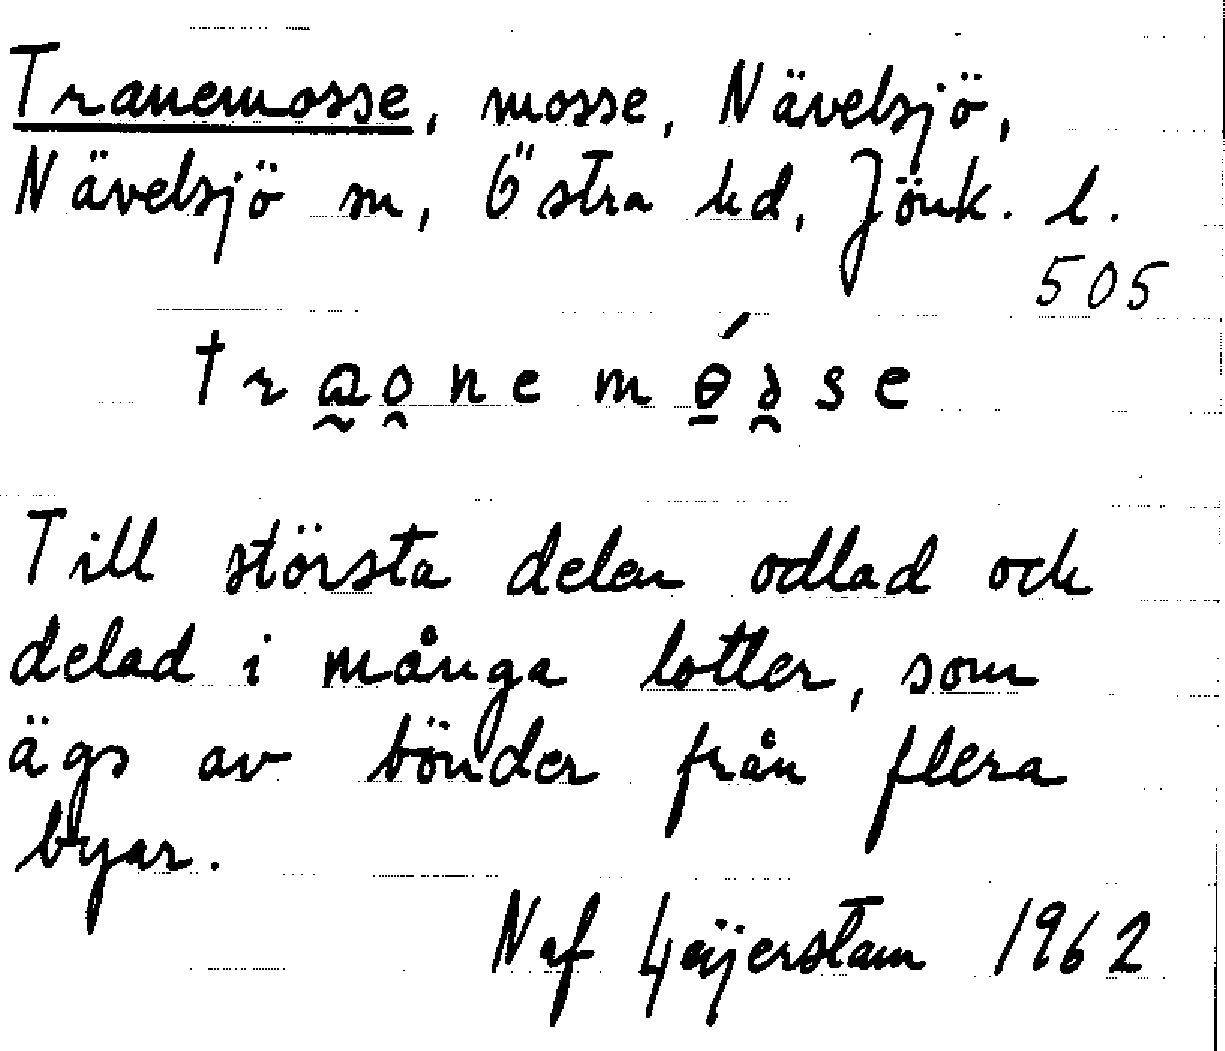 Tranemosse, mosse, Nävelsjö,
Nävelsjö sn, Östra hd, Jönk. l.
505
Till största delen odlad och
delad i många lotter, som
ägs av bönder från flera
byar.
N af Geijerstam 1962